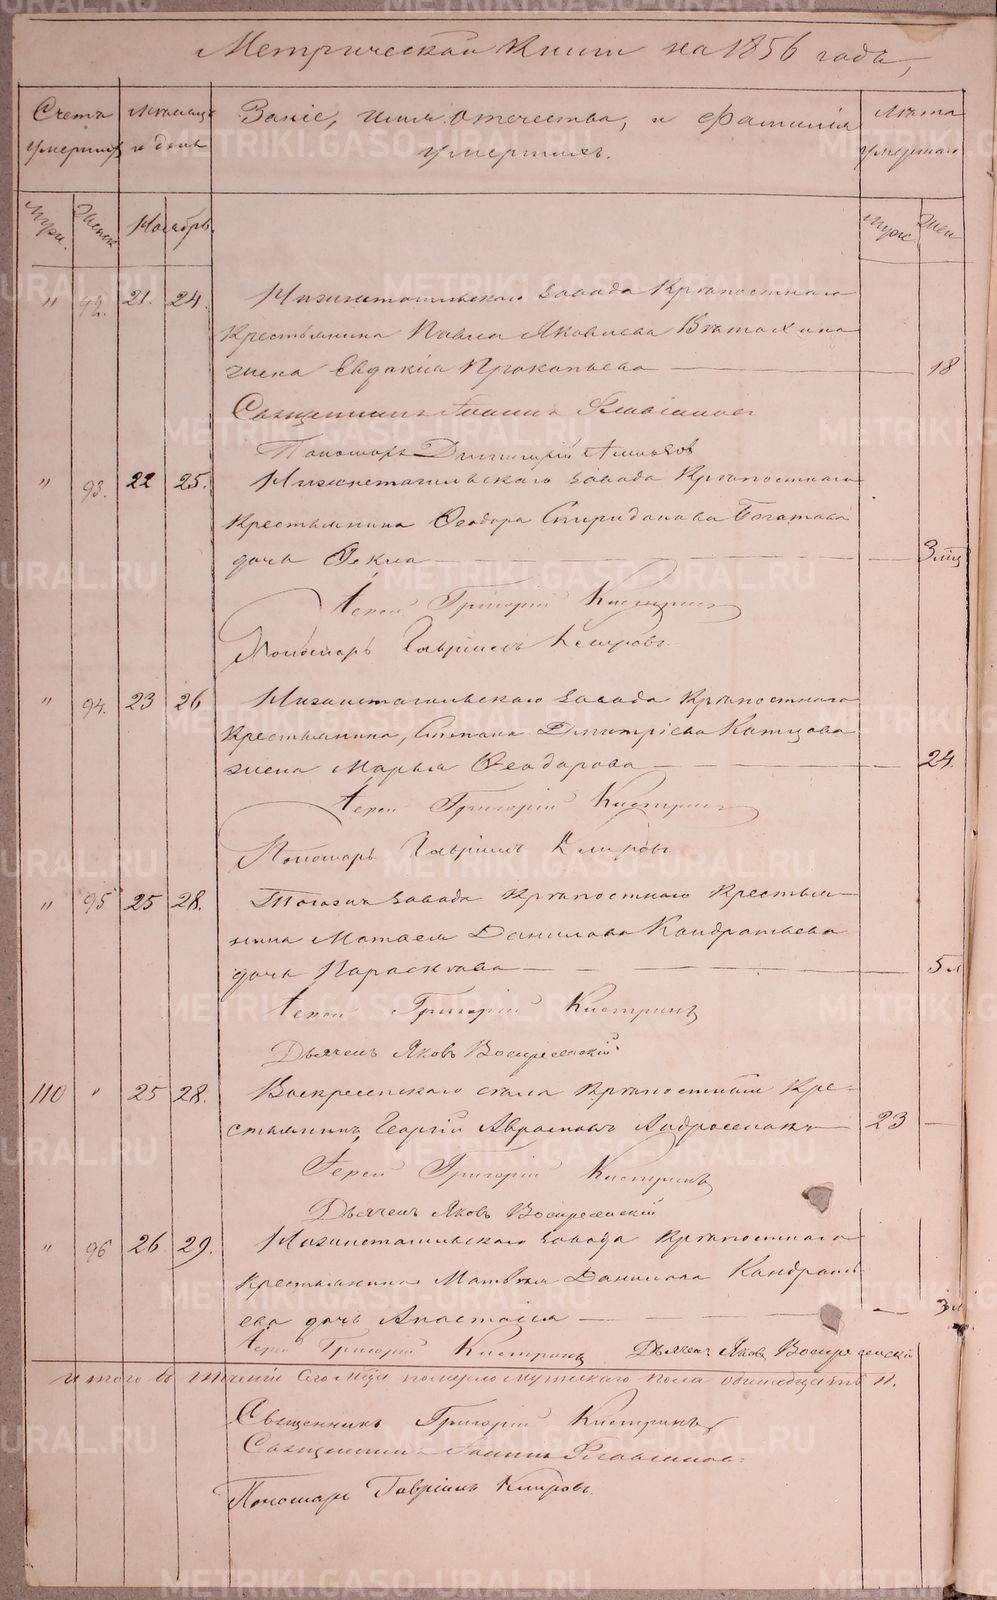 Метрической Книги на 1856 года,
Счетъ умершихъ
Месяцъ и день
Званіе, имя отечества, и Фамилія умершихъ.
Лѣта умершаго
Муж. Женск.
Ноябрь.
Муж Жен
" 92. 21. 24. Нижнетагильскаго завода Крѣпостнаго
Крестьянина Павла Яковлева
жена Евдокія Прокопьева — 18
Священникъ Іоаннъ
Пономарь Димитрій
" 93. 22 25. Нижнетагильскаго завода Крѣпостнаго
Крестьянина Ѳеодора Спиридонова Богатова
дочь Ѳекла — 3 мц
Іерей Григорій Кистринъ
Пономарь Гавріилъ Кипровъ
" 94. 23 26 Нижнетагильскаго завода Крѣпостнаго
Крестьянина, Степана Дмитріева
жена Марья Ѳеодорова — 24.
Іерей Григорій Кистринъ
Пономарь Гавріилъ Кипровъ
" 95 25 28. Тогожъ завода Крѣпостнаго Крестья-
нина Матвея Данилова Кондратьева
дочь Параскева — 5 л
Іерей Григорій Кистринъ
Дьячекъ Яковъ Воскресенскій
110 " 25 28. Воскресенскаго села Крѣпостный Кре-
стьянинъ, Георгій Авраамовъ — 23 —
Іерей Григорій Кистринъ
Дьячекъ Яковъ Воскресенскій
" 96 26 29. Нижнетагильскаго завода Крѣпостнаго
Крестьянина Матвѣя Данилова Кондрать-
ева дочь Анастасія — 3 л
Іерей Григорій Кистринъ Дьячекъ Яковъ Воскресенскій
Итого въ теченіе сего мѣсяца померло мужескаго пола одиннадцать 11.
Священникъ Григорій Кистринъ
Священникъ Іоаннъ
Пономарь Гавріилъ Кипровъ.
METRIKI.GASO-URAL.RU